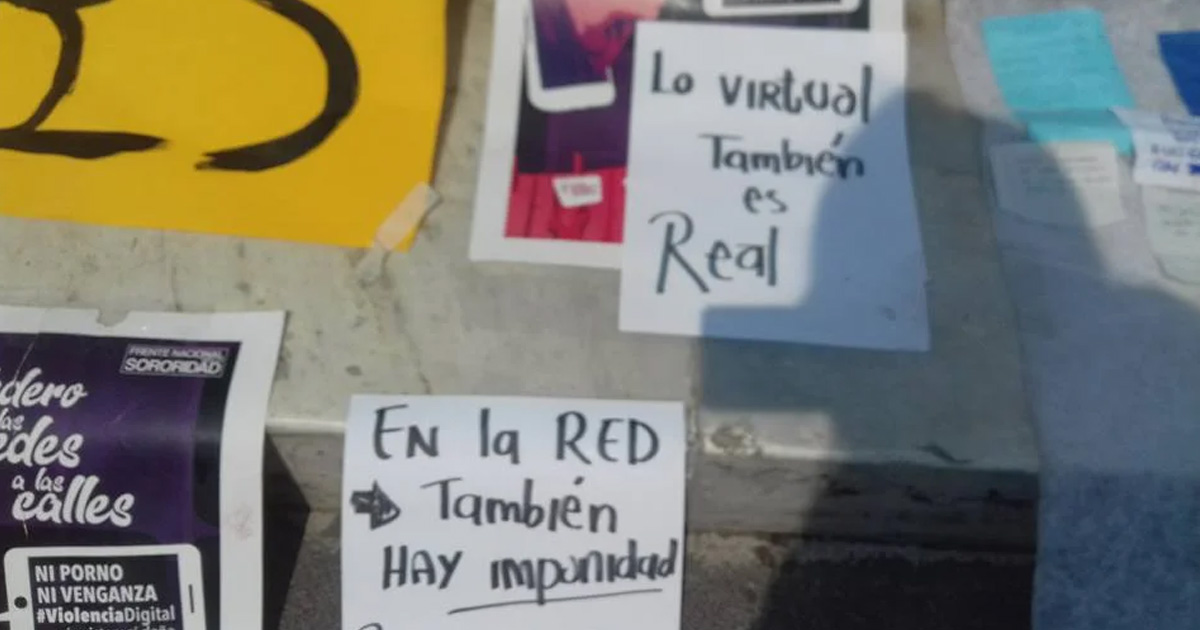 Lo VIRtUal
También
es
Real
FRENTE NACIONAL
SORORIDAD
dero
las
edes
a las
calles
NI PORNO
NI VENGANZA
#ViolenciaDigital
EN la RED
También
HAY impunidad